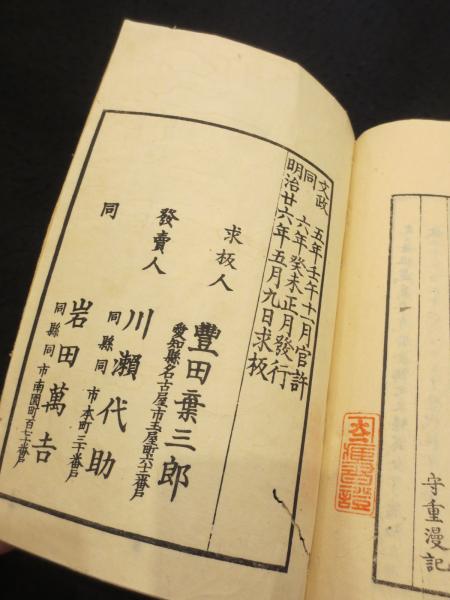 守重漫記
文政五年壬午十一月官許
同六年癸未正月發行
明治廿六年五月九日求板
求板人
豐田棄三郎
愛知縣名古屋市玉屋町六十二番戸
發賣人
川瀬代助
同縣同市本町三十番戸
同
岩田萬吉
同縣同市南園町百七十番戸